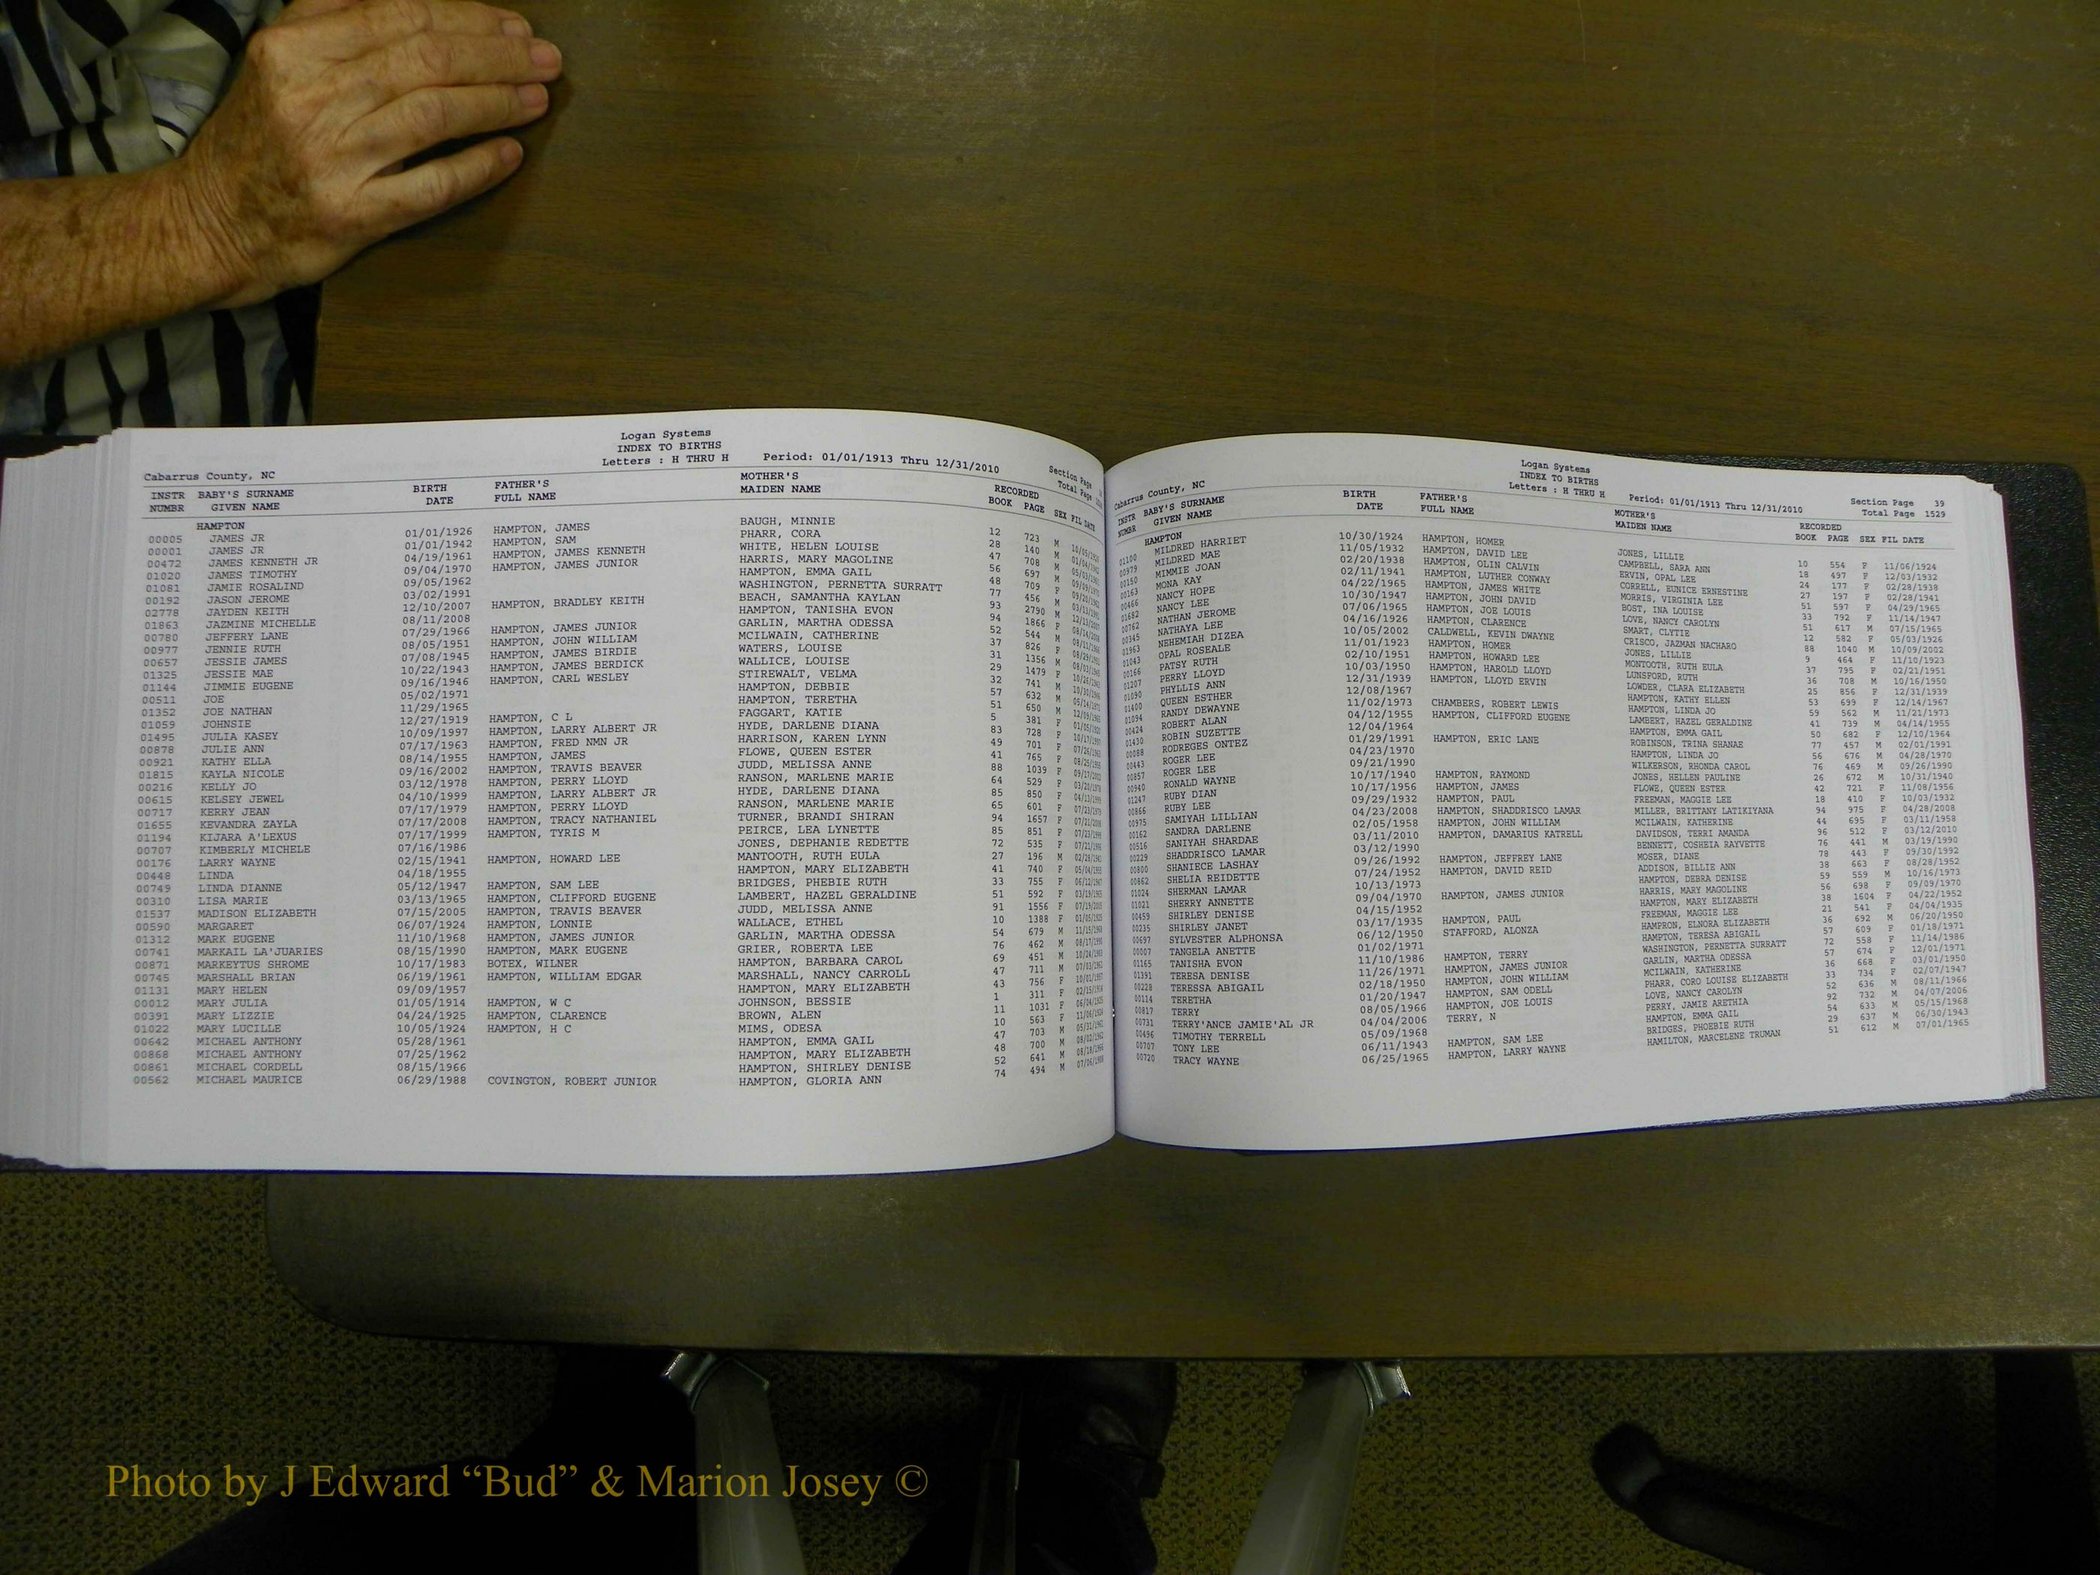 Logan Systems
INDEX TO BIRTHS
Letters : H THRU H
Cabarrus County, NC Period: 01/01/1913 Thru 12/31/2010 Section Page
Total Page
INSTR BABY'S SURNAME BIRTH FATHER'S MOTHER'S RECORDED
NUMBR GIVEN NAME DATE FULL NAME MAIDEN NAME BOOK PAGE SEX FIL DATE
HAMPTON
00005 JAMES JR 01/01/1926 HAMPTON, JAMES BAUGH, MINNIE 12 723 M
00001 JAMES JR 01/01/1942 HAMPTON, SAM PHARR, CORA 28 140 M
00472 JAMES KENNETH JR 04/19/1961 HAMPTON, JAMES KENNETH WHITE, HELEN LOUISE 47 708 M
01020 JAMES TIMOTHY 09/04/1970 HAMPTON, JAMES JUNIOR HARRIS, MARY MAGOLINE 56 697 M
01081 JAMIE ROSALIND 09/05/1962 HAMPTON, EMMA GAIL 48 709 F
00192 JASON JEROME 03/02/1991 WASHINGTON, PERNETTA SURRATT 77 456 M
02778 JAYDEN KEITH 12/10/2007 HAMPTON, BRADLEY KEITH BEACH, SAMANTHA KAYLAN 93 2790 M
01863 JAZMINE MICHELLE 08/11/2008 HAMPTON, TANISHA EVON 94 1866 F
00780 JEFFERY LANE 07/29/1966 HAMPTON, JAMES JUNIOR GARLIN, MARTHA ODESSA 52 544 M
00977 JENNIE RUTH 08/05/1951 HAMPTON, JOHN WILLIAM MCILWAIN, CATHERINE 37 826 F
00657 JESSIE JAMES 07/08/1945 HAMPTON, JAMES BIRDIE WATERS, LOUISE 31 1356 M
01325 JESSIE MAE 10/22/1943 HAMPTON, JAMES BERDICK WALLICE, LOUISE 29 1479 F
01144 JIMMIE EUGENE 09/16/1946 HAMPTON, CARL WESLEY STIREWALT, VELMA 32 741 M
00511 JOE 05/02/1971 HAMPTON, DEBBIE 57 632 M
01352 JOE NATHAN 11/29/1965 HAMPTON, TERETHA 51 650 M
01059 JOHNSIE 12/27/1919 HAMPTON, C L FAGGART, KATIE 5 381 F
01495 JULIA KASEY 10/09/1997 HAMPTON, LARRY ALBERT JR HYDE, DARLENE DIANA 83 728 F
00878 JULIE ANN 07/17/1963 HAMPTON, FRED NMN JR HARRISON, KAREN LYNN 49 701 F
00921 KATHY ELLA 08/14/1955 HAMPTON, JAMES FLOWE, QUEEN ESTER 41 765 F
01815 KAYLA NICOLE 09/16/2002 HAMPTON, TRAVIS BEAVER JUDD, MELISSA ANNE 88 1039 F
00216 KELLY JO 03/12/1978 HAMPTON, PERRY LLOYD RANSON, MARLENE MARIE 64 529 F
00615 KELSEY JEWEL 04/10/1999 HAMPTON, LARRY ALBERT JR HYDE, DARLENE DIANA 85 850 F
00717 KERRY JEAN 07/17/1979 HAMPTON, PERRY LLOYD RANSON, MARLENE MARIE 65 601 F
01655 KEVANDRA ZAYLA 07/17/2008 HAMPTON, TRACY NATHANIEL TURNER, BRANDI SHIRAN 94 1657 F
01194 KIJARA A'LEXUS 07/17/1999 HAMPTON, TYRIS M PEIRCE, LEA LYNETTE 85 851 F
00707 KIMBERLY MICHELE 07/16/1986 JONES, DEPHANIE REDETTE 72 535 F
00176 LARRY WAYNE 02/15/1941 HAMPTON, HOWARD LEE MANTOOTH, RUTH EULA 27 196 M
00448 LINDA 04/18/1955 HAMPTON, MARY ELIZABETH 41 740 F
00749 LINDA DIANNE 05/12/1947 HAMPTON, SAM LEE BRIDGES, PHEBIE RUTH 33 755 F
00310 LISA MARIE 03/13/1965 HAMPTON, CLIFFORD EUGENE LAMBERT, HAZEL GERALDINE 51 592 F
01537 MADISON ELIZABETH 07/15/2005 HAMPTON, TRAVIS BEAVER JUDD, MELISSA ANNE 91 1556 F
00590 MARGARET 06/07/1924 HAMPTON, LONNIE WALLACE, ETHEL 10 1388 F
01312 MARK EUGENE 11/10/1968 HAMPTON, JAMES JUNIOR GARLIN, MARTHA ODESSA 54 679 M
00741 MARKAIL LA'JUARIES 08/15/1990 HAMPTON, MARK EUGENE GRIER, ROBERTA LEE 76 462 M
00871 MARKEYTUS SHROME 10/17/1983 BOTEX, WILNER HAMPTON, BARBARA CAROL 69 451 M
00745 MARSHALL BRIAN 06/19/1961 HAMPTON, WILLIAM EDGAR MARSHALL, NANCY CARROLL 47 711 M
01131 MARY HELEN 09/09/1957 HAMPTON, MARY ELIZABETH 43 756 F
00012 MARY JULIA 01/05/1914 HAMPTON, W C JOHNSON, BESSIE 1 311 F
00391 MARY LIZZIE 04/24/1925 HAMPTON, CLARENCE BROWN, ALEN 11 1031 F
01022 MARY LUCILLE 10/05/1924 HAMPTON, H C MIMS, ODESA 10 563 F
00642 MICHAEL ANTHONY 05/28/1961 HAMPTON, EMMA GAIL 47 703 M
00868 MICHAEL ANTHONY 07/25/1962 HAMPTON, MARY ELIZABETH 48 700 M
00861 MICHAEL CORDELL 08/15/1966 HAMPTON, SHIRLEY DENISE 52 641 M
00562 MICHAEL MAURICE 06/29/1988 COVINGTON, ROBERT JUNIOR HAMPTON, GLORIA ANN 74 494 M
Logan Systems
INDEX TO BIRTHS
Letters : H THRU H
Cabarrus County, NC Period: 01/01/1913 Thru 12/31/2010 Section Page 39
Total Page 1529
INSTR BABY'S SURNAME BIRTH FATHER'S MOTHER'S RECORDED
NUMBR GIVEN NAME DATE FULL NAME MAIDEN NAME BOOK PAGE SEX FIL DATE
HAMPTON
01100 MILDRED HARRIET 10/30/1924 HAMPTON, HOMER JONES, LILLIE 10 554 F 11/06/1924
00979 MILDRED MAE 11/05/1932 HAMPTON, DAVID LEE CAMPBELL, SARA ANN 18 497 F 12/03/1932
00150 MIMMIE JOAN 02/20/1938 HAMPTON, OLIN CALVIN ERVIN, OPAL LEE 24 177 F 02/28/1938
00163 MONA KAY 02/11/1941 HAMPTON, LUTHER CONWAY CORRELL, EUNICE ERNESTINE 27 197 F 02/28/1941
00466 NANCY HOPE 04/22/1965 HAMPTON, JAMES WHITE MORRIS, VIRGINIA LEE 51 597 F 04/29/1965
01682 NANCY LEE 10/30/1947 HAMPTON, JOHN DAVID BOST, INA LOUISE 33 792 F 11/14/1947
00762 NATHAN JEROME 07/06/1965 HAMPTON, JOE LOUIS LOVE, NANCY CAROLYN 51 617 M 07/15/1965
00345 NATHAYA LEE 04/16/1926 HAMPTON, CLARENCE SMART, CLYTIE 12 582 F 05/03/1926
01963 NEHEMIAH DIZEA 10/05/2002 CALDWELL, KEVIN DWAYNE CRISCO, JAZMAN NACHARO 88 1040 M 10/09/2002
01043 OPAL ROSEALE 11/01/1923 HAMPTON, HOMER JONES, LILLIE 9 464 F 11/10/1923
00166 PATSY RUTH 02/10/1951 HAMPTON, HOWARD LEE MONTOOTH, RUTH EULA 37 795 F 02/21/1951
01207 PERRY LLOYD 10/03/1950 HAMPTON, HAROLD LLOYD LUNSFORD, RUTH 36 708 M 10/16/1950
01090 PHYLLIS ANN 12/31/1939 HAMPTON, LLOYD ERVIN LOWDER, CLARA ELIZABETH 25 856 F 12/31/1939
01400 QUEEN ESTHER 12/08/1967 HAMPTON, KATHY ELLEN 53 699 F 12/14/1967
01094 RANDY DEWAYNE 11/02/1973 CHAMBERS, ROBERT LEWIS HAMPTON, LINDA JO 59 562 M 11/21/1973
00424 ROBERT ALAN 04/12/1955 HAMPTON, CLIFFORD EUGENE LAMBERT, HAZEL GERALDINE 41 739 M 04/14/1955
01430 ROBIN SUZETTE 12/04/1964 HAMPTON, EMMA GAIL 50 682 F 12/10/1964
00088 RODREGES ONTEZ 01/29/1991 HAMPTON, ERIC LANE ROBINSON, TRINA SHANAE 77 457 M 02/01/1991
00443 ROGER LEE 04/23/1970 HAMPTON, LINDA JO 56 676 M 04/28/1970
00857 ROGER LEE 09/21/1990 WILKERSON, RHONDA CAROL 76 469 M 09/26/1990
00940 RONALD WAYNE 10/17/1940 HAMPTON, RAYMOND JONES, HELLEN PAULINE 26 672 M 10/31/1940
01247 RUBY DIAN 10/17/1956 HAMPTON, JAMES FLOWE, QUEEN ESTER 42 721 F 11/08/1956
00866 RUBY LEE 09/29/1932 HAMPTON, PAUL FREEMAN, MAGGIE LEE 18 410 F 10/03/1932
00975 SAMIYAH LILLIAN 04/23/2008 HAMPTON, SHADDRISCO LAMAR MILLER, BRITTANY LATIKIYANA 94 975 F 04/28/2008
00162 SANDRA DARLENE 02/05/1958 HAMPTON, JOHN WILLIAM MCILWAIN, KATHERINE 44 695 F 03/11/1958
00516 SANIYAH SHARDAE 03/11/2010 HAMPTON, DAMARIUS KATRELL DAVIDSON, TERRI AMANDA 96 512 F 03/12/2010
00229 SHADDRISCO LAMAR 03/12/1990 BENNETT, COSHEIA RAYVETTE 76 441 M 03/19/1990
00800 SHANIECE LASHAY 09/26/1992 HAMPTON, JEFFREY LANE MOSER, DIANE 78 443 F 09/30/1992
00862 SHELIA REIDETTE 07/24/1952 HAMPTON, DAVID REID ADDISON, BILLIE ANN 38 663 F 08/28/1952
01024 SHERMAN LAMAR 10/13/1973 HAMPTON, DEBRA DENISE 59 559 M 10/16/1973
01021 SHERRY ANNETTE 09/04/1970 HAMPTON, JAMES JUNIOR HARRIS, MARY MAGOLINE 56 698 F 09/09/1970
00459 SHIRLEY DENISE 04/15/1952 HAMPTON, MARY ELIZABETH 38 1604 F 04/22/1952
00235 SHIRLEY JANET 03/17/1935 HAMPTON, PAUL FREEMAN, MAGGIE LEE 21 541 F 04/04/1935
00697 SYLVESTER ALPHONSA 06/12/1950 STAFFORD, ALONZA HAMPRON, ELNORA ELIZABETH 36 692 M 06/20/1950
00007 TANGELA ANETTE 01/02/1971 HAMPTON, TERESA ABIGAIL 57 609 F 01/18/1971
01165 TANISHA EVON 11/10/1986 HAMPTON, TERRY WASHINGTON, PERNETTA SURRATT 72 558 F 11/14/1986
01391 TERESA DENISE 11/26/1971 HAMPTON, JAMES JUNIOR GARLIN, MARTHA ODESSA 57 674 F 12/01/1971
00228 TERESSA ABIGAIL 02/18/1950 HAMPTON, JOHN WILLIAM MCILWAIN, KATHERINE 36 668 F 03/01/1950
00114 TERETHA 01/20/1947 HAMPTON, SAM ODELL PHARR, CORO LOUISE ELIZABETH 33 734 F 02/07/1947
00817 TERRY 08/05/1966 HAMPTON, JOE LOUIS LOVE, NANCY CAROLYN 52 636 M 08/11/1966
00731 TERRY'ANCE JAMIE'AL JR 04/04/2006 TERRY, N PERRY, JAMIE ARETHIA 92 732 M 04/07/2006
00496 TIMOTHY TERRELL 05/09/1968 HAMPTON, EMMA GAIL 54 633 M 05/15/1968
00707 TONY LEE 06/11/1943 HAMPTON, SAM LEE BRIDGES, PHOEBIE RUTH 29 637 M 06/30/1943
00720 TRACY WAYNE 06/25/1965 HAMPTON, LARRY WAYNE HAMILTON, MARCELENE TRUMAN 51 612 M 07/01/1965
Photo by J Edward “Bud” & Marion Josey ©